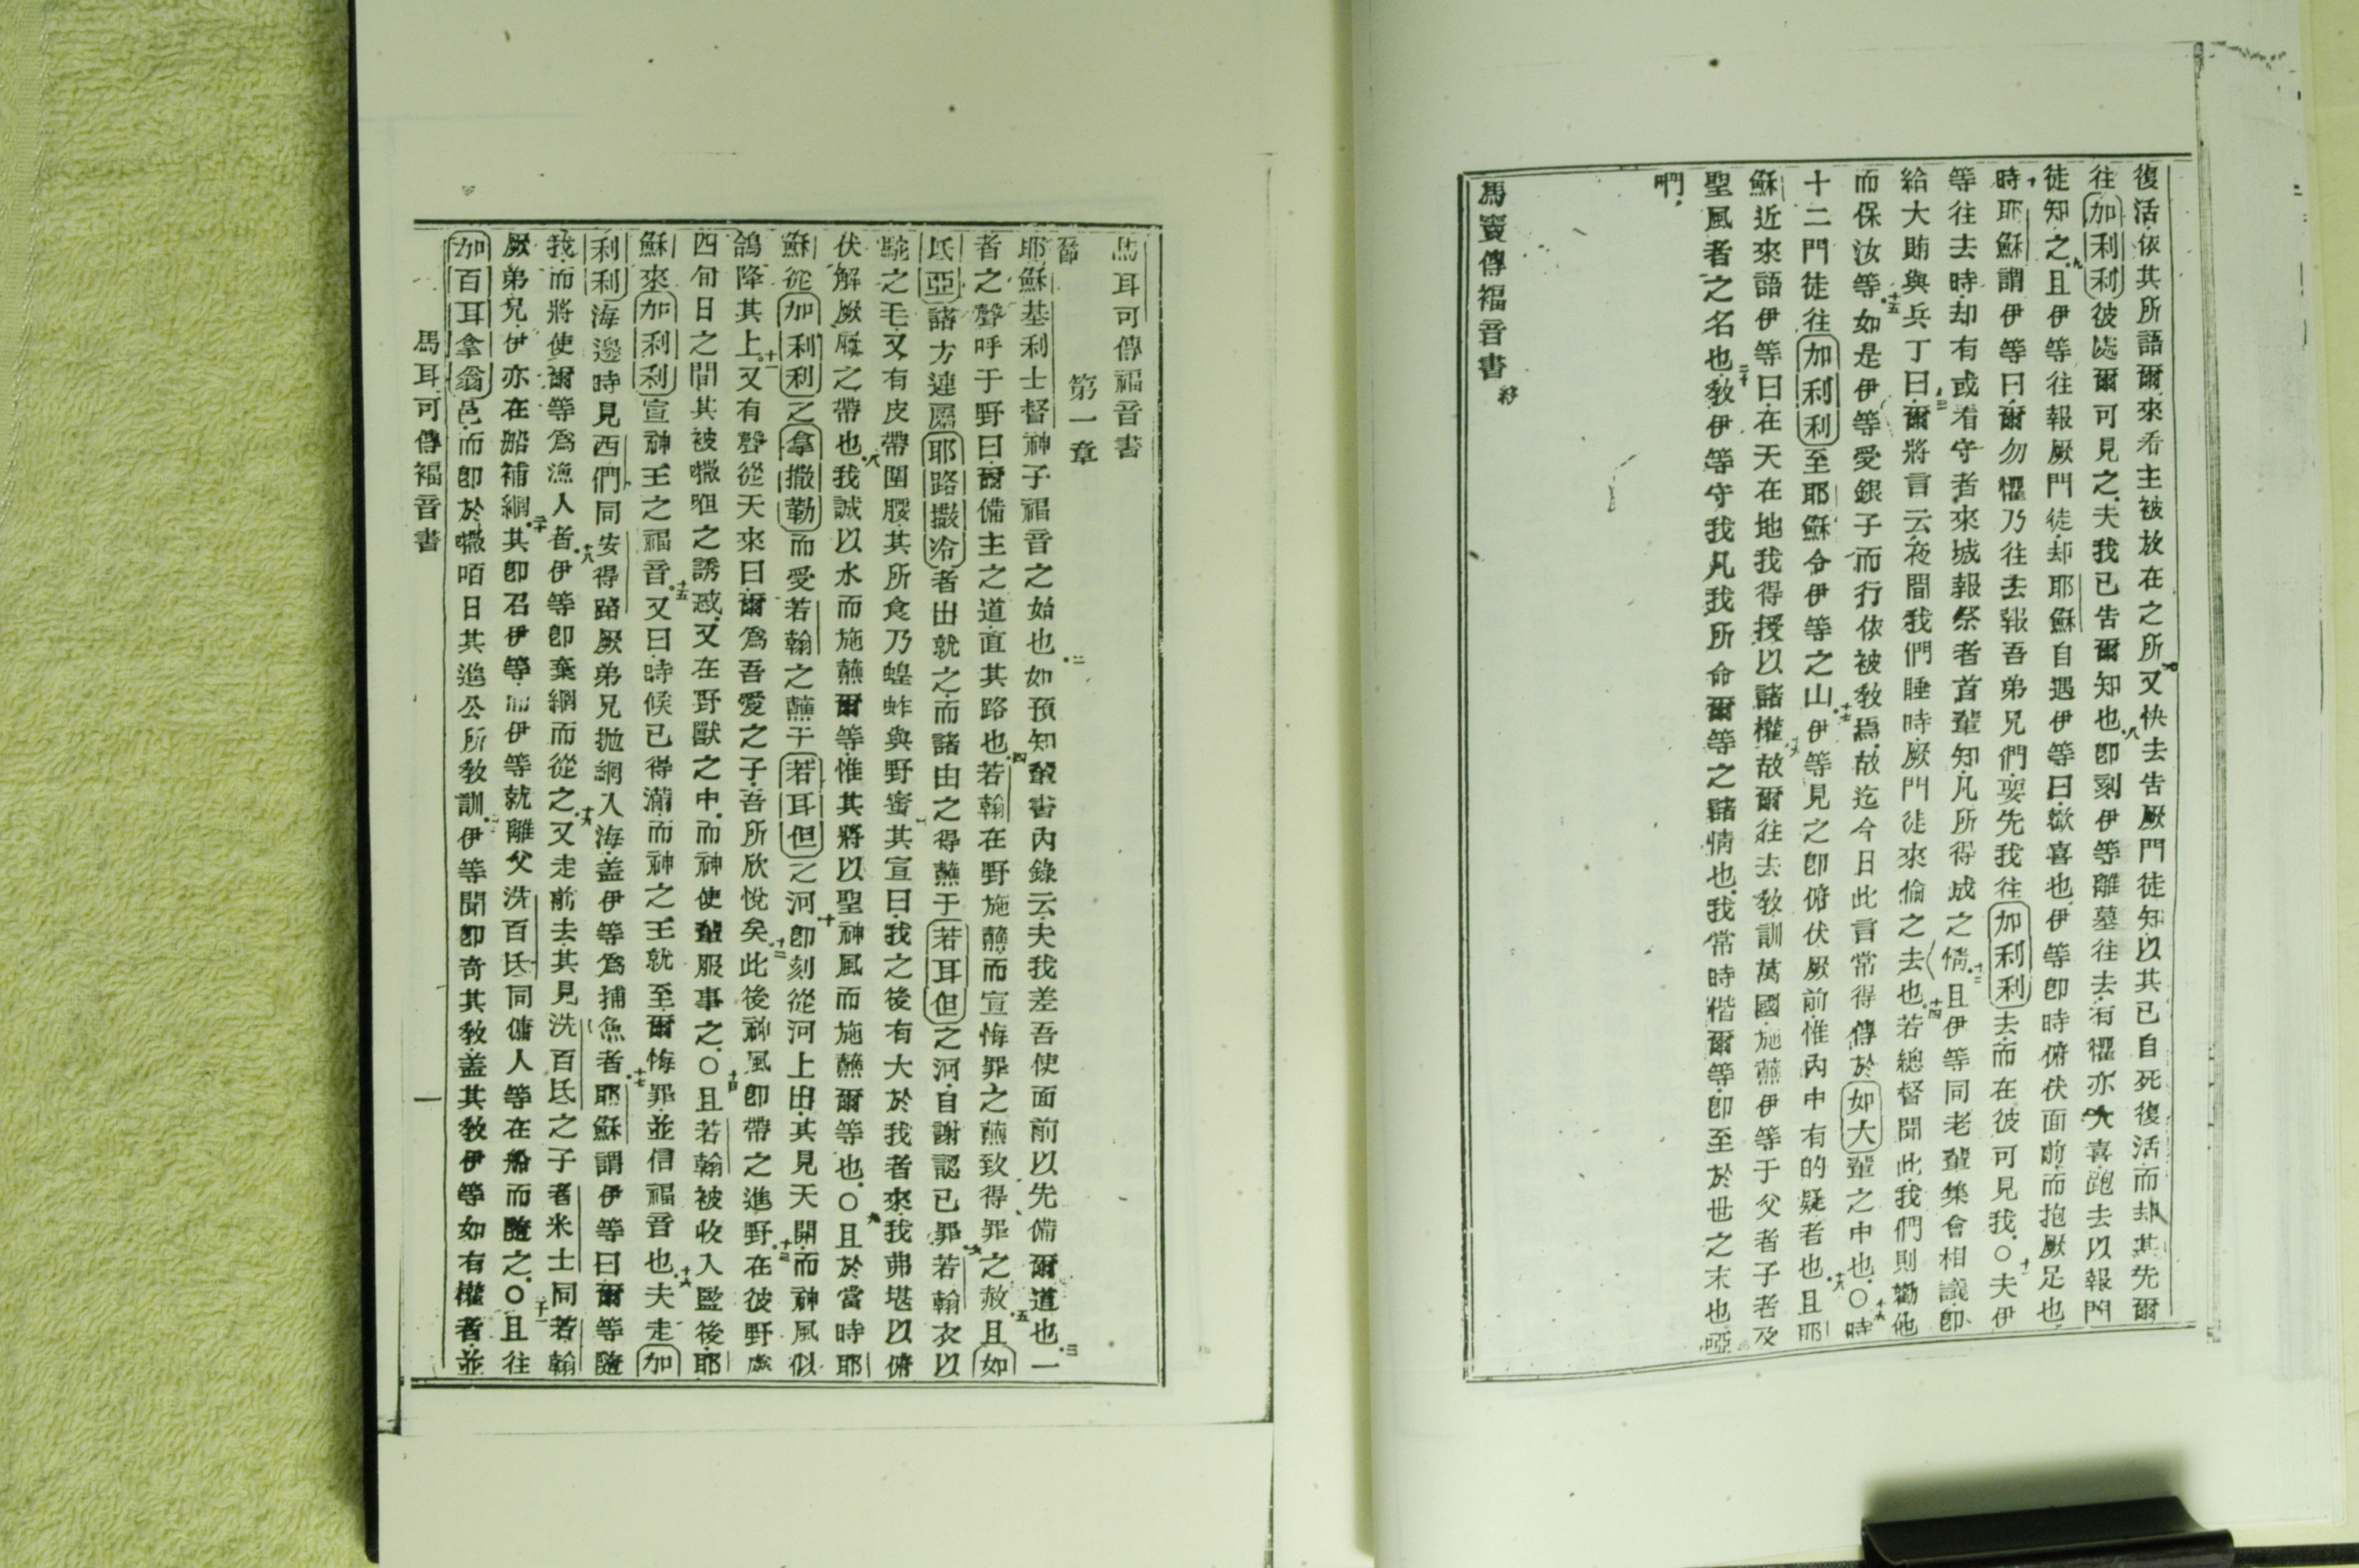 復活依其所語爾來看主被放在之所又快去告厥門徒知以其已自死復活而却其先爾
往加利利彼處爾可見之夫我已告爾知也八卽刻伊等離墓往去有懼亦大喜跑去以報門
徒知之九且伊等往報厥門徒却耶穌自遇伊等曰歡喜也伊等卽時俯伏面前而抱厥足也
十時耶穌謂伊等曰爾勿懼乃往去報吾弟兄們要先我往加利利去而在彼可見我○十一夫伊
等往去時却有或看守者來城報祭者首輩知凡所得成之情十二且伊等同老輩集會相議卽
給大賄與兵丁曰十三爾將言云夜間我們睡時厥門徒來偷之去也十四若總督聞此我們則勸他
而保汝等十五如是伊等愛銀子而行依被敎焉故迄今日此言常得傳於如大輩之中也○十六時
十二門徒往加利利至耶穌令伊等之山十七伊等見之卽俯伏厥前惟內中有的疑者也十八且耶
穌近來語伊等曰在天在地我得授以諸權十九故爾往去敎訓萬國施蘸伊等于父者子者及
聖風者之名也二十敎伊等守我凡我所命爾等之諸情也我常時偕爾等卽至於世之末也啞
們
馬竇傳福音書終
馬耳可傳福音書
第一章
節一耶穌基利士督神子福音之始也二如預知輩書內錄云夫我差吾使面前以先備爾道也三一
者之聲呼于野曰爾備主之道直其路也四若翰在野施蘸而宣悔罪之蘸致得罪之赦五且如
氐亞諸方連屬耶路撒冷者出就之而諸由之得蘸于若耳但之河自謝認已罪六若翰衣以
駝之毛又有皮帶圍腰其所食乃蝗蚱與野蜜七其宣曰我之後有大於我者來我弗堪以俯
伏解厥履之帶也八我誠以水而施蘸爾等惟其將以聖神風而施蘸爾等也○九且於當時耶
穌從加利利之拿撒勒而受若翰之蘸于若耳但之河十卽刻從河上出其見天開而神風似
鴿降其上十一又有聲從天來曰爾爲吾愛之子吾所欣悅矣十二此後神風卽帶之進野十三在彼野處
四旬日之間其被㘔呾之誘惑又在野獸之中而神使輩服事之○十四且若翰被收入監後耶
穌來加利利宣神王之福音十五又曰時候已得滿而神之王就至爾悔罪並信福音也十六夫走加
利利海邊時見西們同安得路厥弟兄拋網入海盖伊等爲捕魚者十七耶穌謂伊等曰爾等隨
我而將使爾等爲漁人者十八伊等卽棄網而從之十九又走前去其見洗百氐之子者米士同若翰
厥弟兄伊亦在船補網二十其卽召伊等而伊等就離父洗百氐同傭人等在船而隨之○二十一且往
加百耳拿翁邑而卽於㘔咟日其進公所敎訓二十二伊等聞卽奇其敎盖其敎伊等如有權者並
馬耳可傳福音書　一